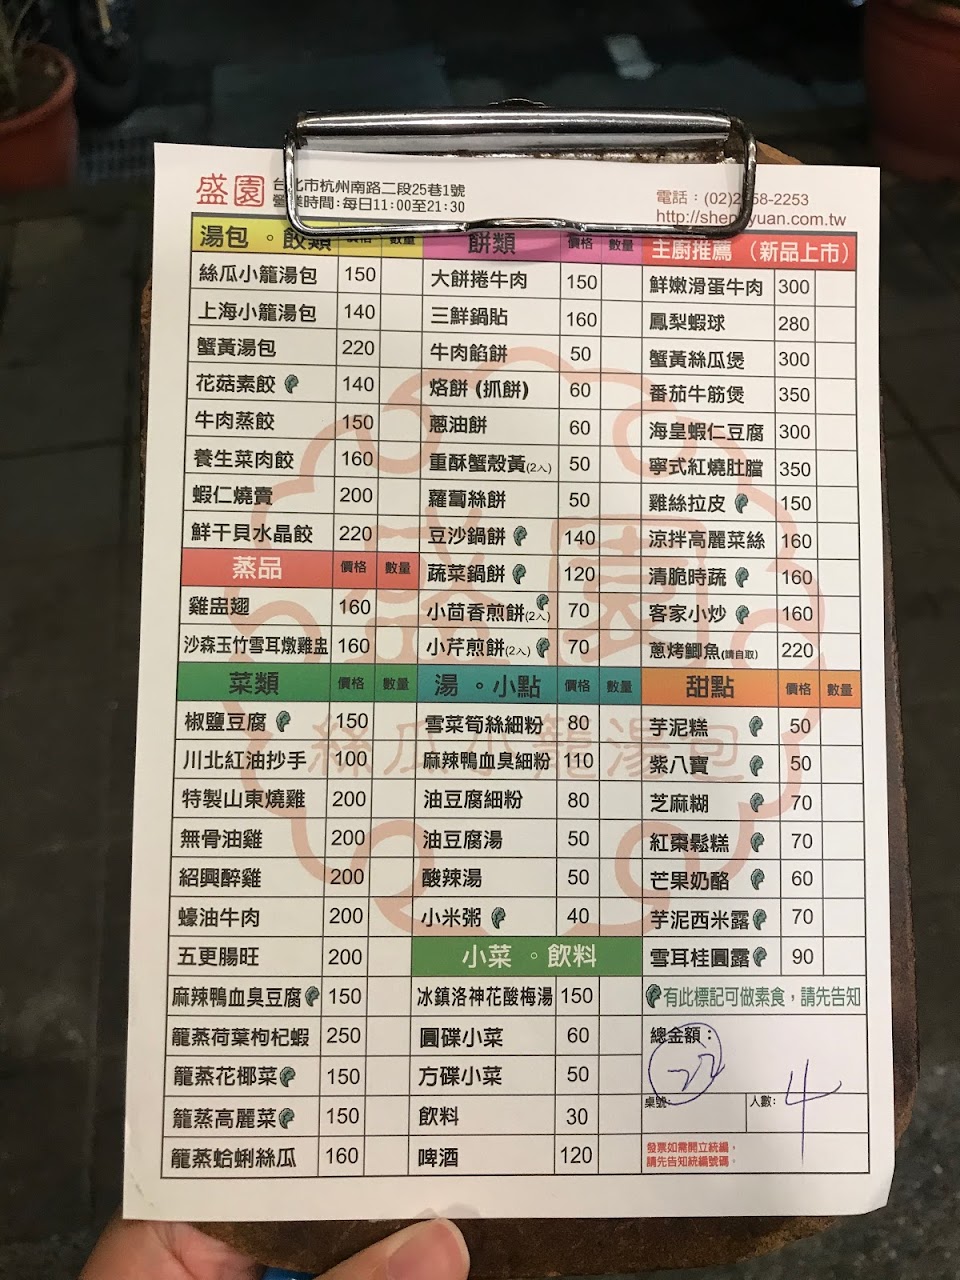 盛園
台北市杭州南路二段25巷1號
營業時間:每日11:00至21:30
電話:(02)2 58-2253
http://shen yuan.com.tw
湯包。餃類 價格 數量
絲瓜小籠湯包 150
上海小籠湯包 140
蟹黃湯包 220
花菇素餃 140
牛肉蒸餃 150
養生菜肉餃 160
蝦仁燒賣 200
鮮干貝水晶餃 220
蒸品 價格 數量
雞盅翅 160
沙森玉竹雪耳燉雞盅 160
菜類 價格 數量
椒鹽豆腐 150
川北紅油抄手 100
特製山東燒雞 200
無骨油雞 200
紹興醉雞 200
蠔油牛肉 200
五更腸旺 200
麻辣鴨血臭豆腐 150
籠蒸荷葉枸杞蝦 250
籠蒸花椰菜 150
籠蒸高麗菜 150
籠蒸蛤蜊絲瓜 160
餅類 價格 數量
大餅捲牛肉 150
三鮮鍋貼 160
牛肉餡餅 50
烙餅(抓餅) 60
蔥油餅 60
重酥蟹殼黃(2入) 50
蘿蔔絲餅 50
豆沙鍋餅 140
蔬菜鍋餅 120
小茴香煎餅(2入) 70
小芹煎餅(2入) 70
湯。小點 價格 數量
雪菜筍絲細粉 80
麻辣鴨血臭細粉 110
油豆腐細粉 80
油豆腐湯 50
酸辣湯 50
小米粥 40
小菜。飲料
冰鎮洛神花酸梅湯 150
圓碟小菜 60
方碟小菜 50
飲料 30
啤酒 120
主廚推薦(新品上市)
鮮嫩滑蛋牛肉 300
鳳梨蝦球 280
蟹黃絲瓜煲 300
番茄牛筋煲 350
海皇蝦仁豆腐 300
寧式紅燒肚膛 350
雞絲拉皮 150
涼拌高麗菜絲 160
清脆時蔬 160
客家小炒 160
蔥烤鯽魚(請自取) 220
甜點 價格 數量
芋泥糕 50
紫八寶 50
芝麻糊 70
紅棗鬆糕 70
芒果奶酪 60
芋泥西米露 70
雪耳桂圓露 90
有此標記可做素食,請先告知
總金額:
桌號: 22
人數: 4
發票如需開立統編,
請先告知統編號碼。
盛園
絲瓜小籠湯包